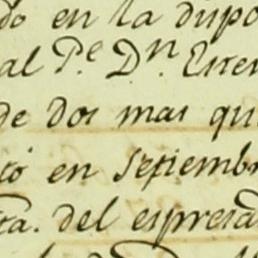 do en la dispo
al P.e D.n Este
de dos mas qu
to en Septiemb
ta. del espresa